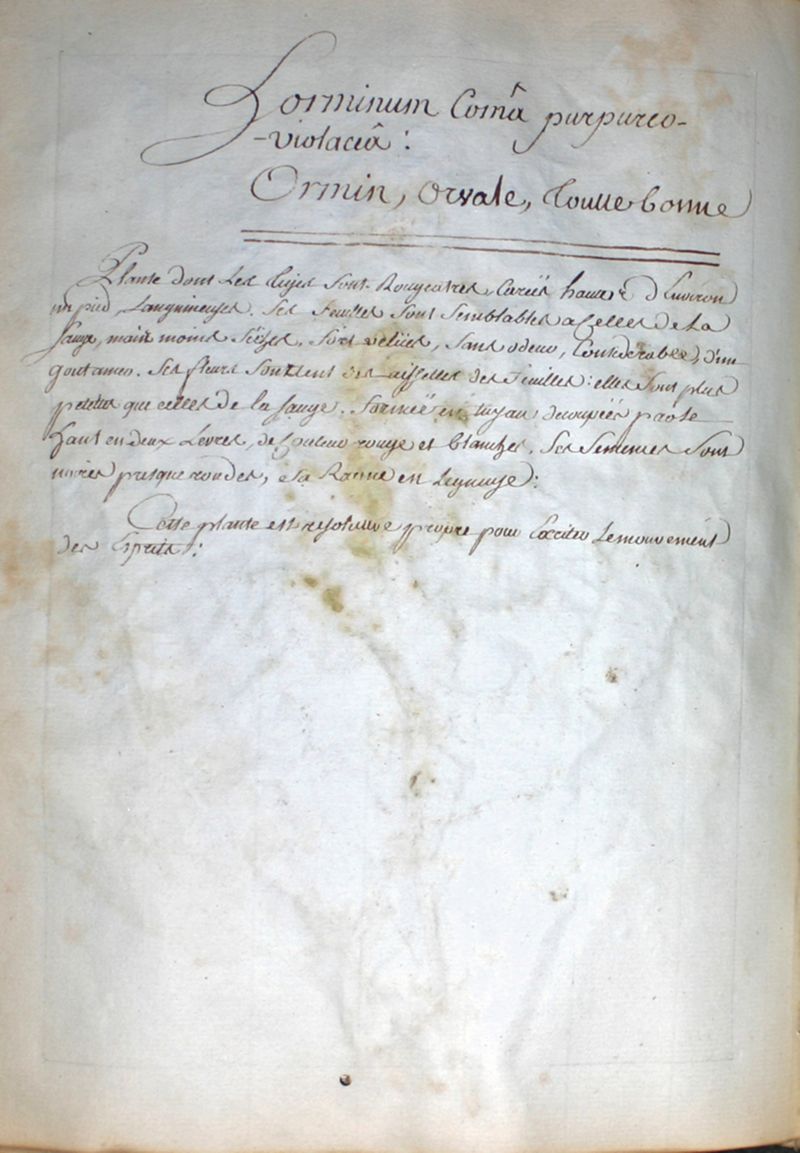 horminum Comâ purpureo-
-violaceâ :
Ormin, orvale, Toutte bonne
Plante dont Les tiges sont Rougeatres, Carées hautes d'Environ
un pied, Languineuses. Ses feuilles sont semblables a Celles de La
Sauge, mais moins seches. sont velües, sans odeur, Considerable, d'un
goutameo. Ses fleurs sortent des aisselles des feuilles : elles sont plus
petittes que celles de la sauge. formées en tuyau, decoupées par le
haut en deux Levres, de Couleur rouge et blanches. Ses semences sont
noires presque rondes, sa Racine en Ligneuse :
Cette plante est resolutive propre pour Exciter Le mouvement
des Esprits :